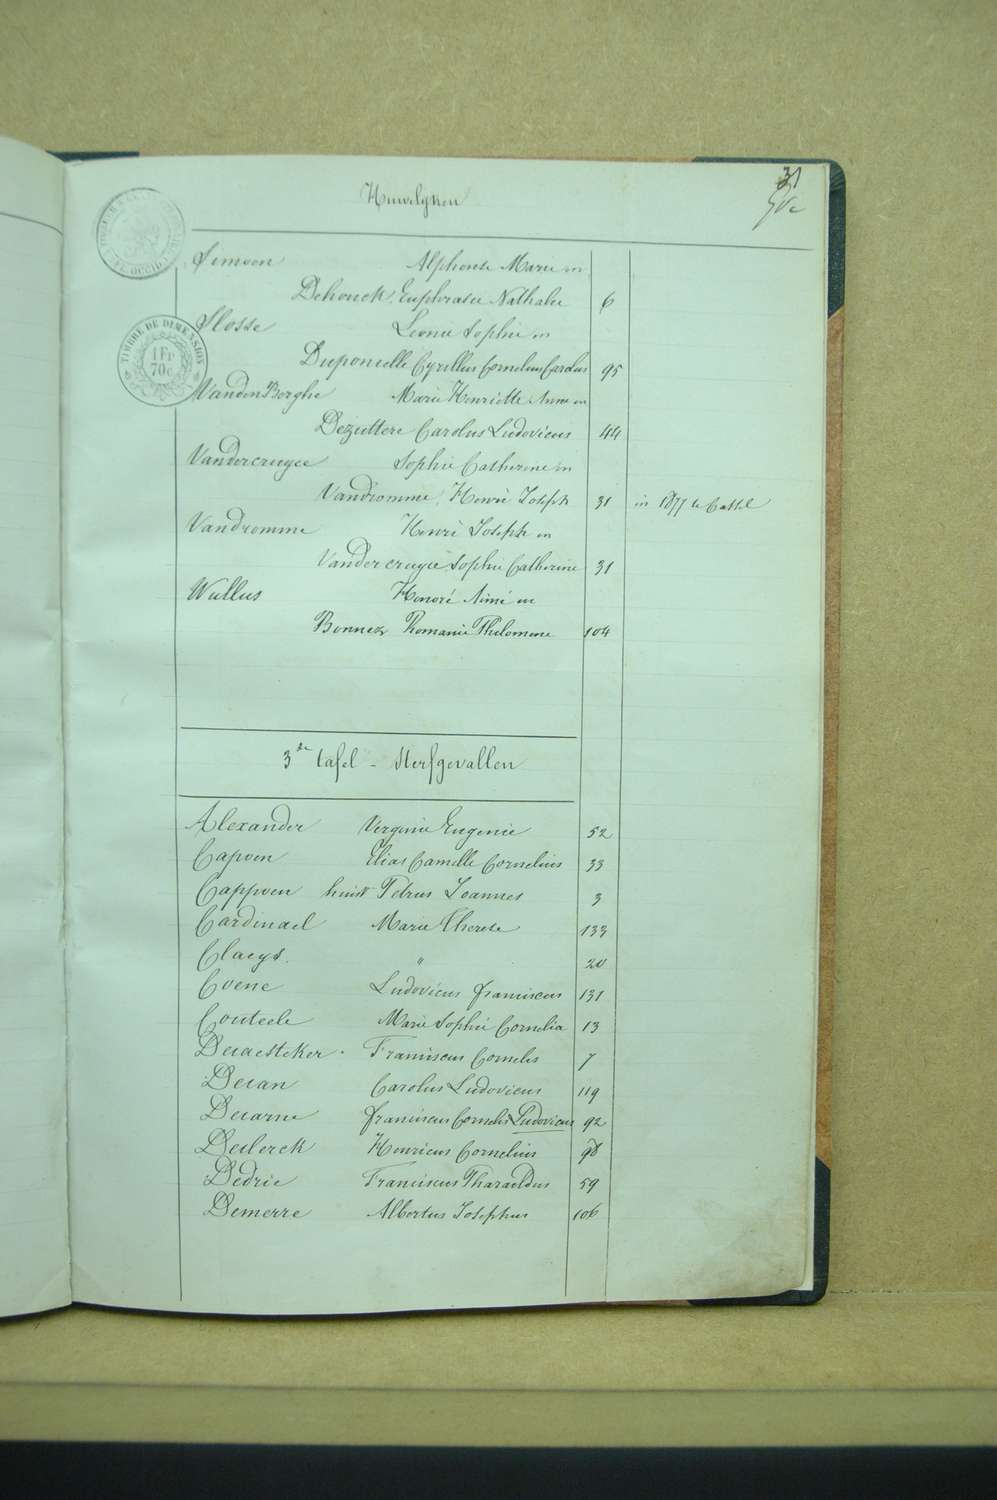 Huwelyken
31
Simoen Alphonse Marie en
Dehonck Euphrasie Nathalie 6
Slosse Leonie Sophie en
Duponselle Cyrillus Cornelius Carolus 95
Vanden Berghe Marie Henriette Anne en
Dezuttere Carolus Ludovicus 44
Vandercruyce Sophie Catherine en
Vandromme Henri Joseph 31 in 1877 te Cassel
Vandromme Henri Joseph en
Vandercruyce Sophie Catherine 31
Wullus Honoré Aimé en
Bonnez Romanie Philomene 104
TIMBRE DE DIMENSION
1 Fr
70c
3de tafel - Sterfgevallen
Alexander Verginie Eugenie 52
Capoen Elias Camille Cornelius 33
Cappoen Petrus Joannes 3
Cardinael Marie Therese 133
Claeys. " 20
Coene Ludovicus franciscus 131
Couteele Marie Sophie Cornelia 13
Decaesteker Franciscus Cornelis 7
Decan Carolus Ludovicus 119
Decarne franciscus Cornelis Ludovicus 92
Declerck Henricus Cornelius 98
Dedrie Franciscus Tharaeldus 59
Demerre Albertus Josephus 106